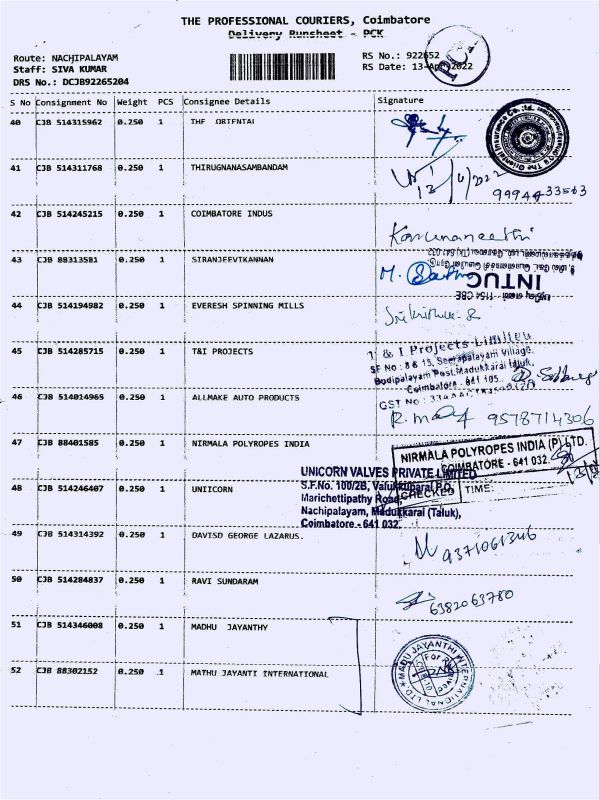 THE PROFESSIONAL COURIERS, Coimbatore
Delivery Runsheet - PCK
Route: NACHIPALAYAM
Staff: SIVA KUMAR
DRS No.: DCJB92265204
RS No.: 922652
RS Date: 13-Apr-2022
S No Consignment No Weight PCS Consignee Details Signature
40 CJB 514315962 0.250 1 THE ORIENTAL
41 CJB 514311768 0.250 1 THIRUGNANASAMBANDAM
9994433563
42 CJB 514245215 0.250 1 COIMBATORE INDUS
Karunaneethi
43 CJB 88313581 0.250 1 SIRANJEEVTKANNAN
INTUC
44 CJB 514194982 0.250 1 EVERESH SPINNING MILLS
45 CJB 514285715 0.250 1 T&I PROJECTS
T & I Projects Limited
SF No : 8 & 15, Seerapalayam Village,
Bodipalayam Post, Madukkarai taluk,
Coimbatore - 641 105.
GST No :
46 CJB 514014965 0.250 1 ALLMAKE AUTO PRODUCTS
9578714306
47 CJB 88401585 0.250 1 NIRMALA POLYROPES INDIA
NIRMALA POLYROPES INDIA (P) LTD.
COIMBATORE - 641 032.
CHECKED TIME:
48 CJB 514246407 0.250 1 UNIICORN
UNICORN VALVES PRIVATE LIMITED
S.F.No. 100/2B, Valukkuparai P.O.
Marichettipathy Road,
Nachipalayam, Madukkarai (Taluk),
Coimbatore - 641 032.
49 CJB 514314392 0.250 1 DAVISD GEORGE LAZARUS.
50 CJB 514284837 0.250 1 RAVI SUNDARAM
6382063780
51 CJB 514346008 0.250 1 MADHU JAYANTHY
52 CJB 88302152 0.250 1 MATHU JAYANTI INTERNATIONAL
MADU JAYANTHI INTERNATIONAL LTD.